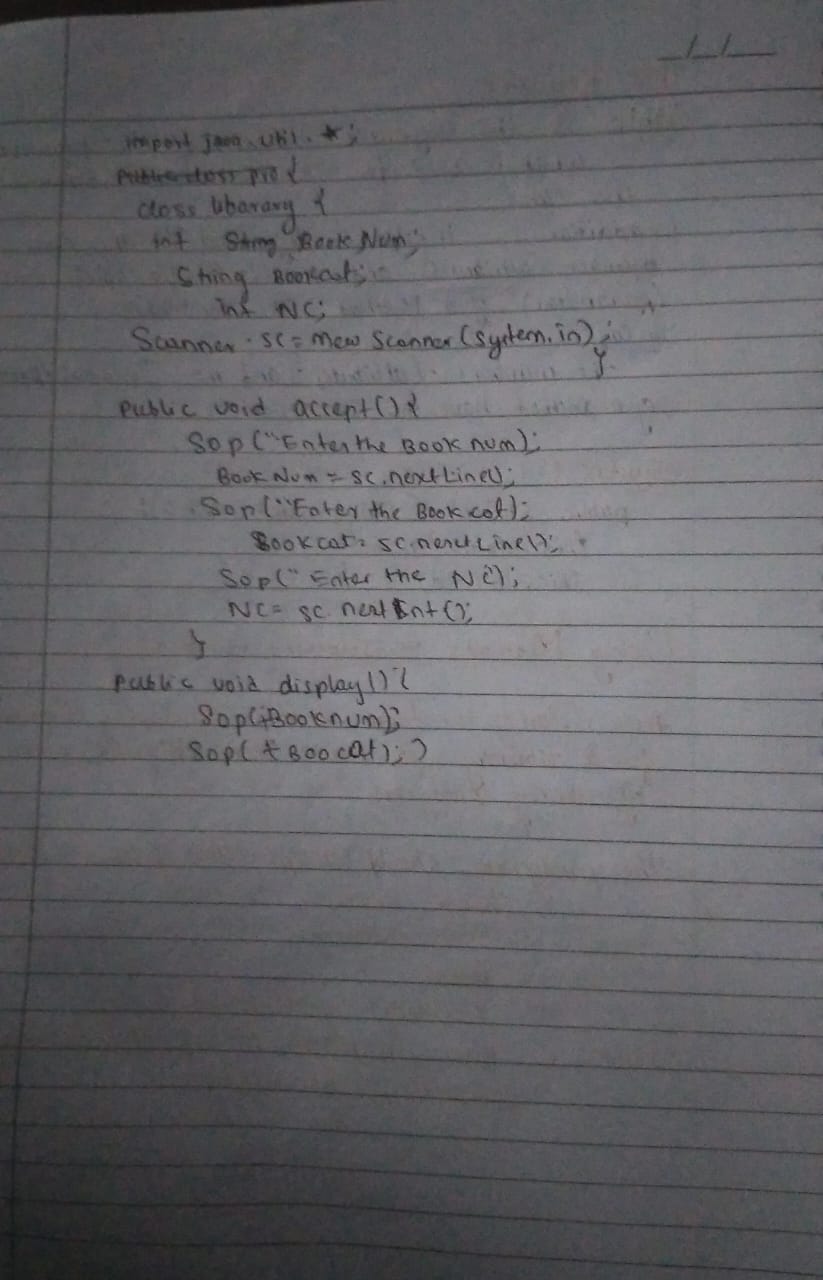 import java.util.*;
Public class pro {
class libarary {
int String Book Num;
String Bookcat;
int NC;
Scanner sc = new Scanner (System.in);
}
public void accept() {
Sop ("Enter the Book num);
Book Num = sc.nextLine();
Sop ("Enter the Book cat);
Bookcat = sc.nextLine();
Sop (" Enter the NC);
NC = sc. next Int ();
}
public void display() {
Sop(+Booknum);
Sop( + Boocat); }